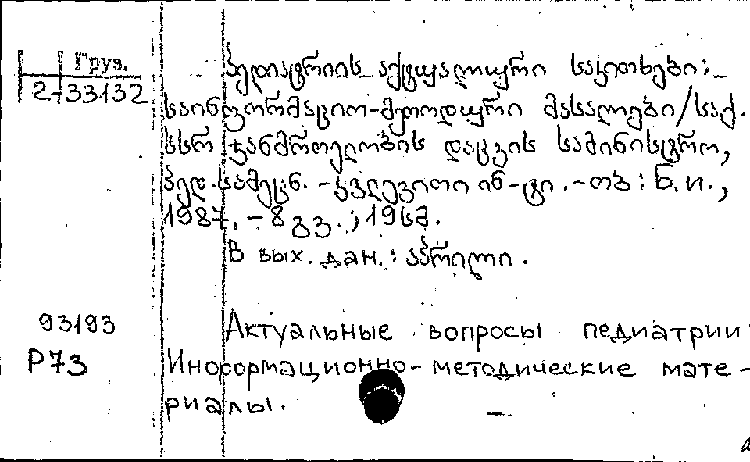 Груз.
2-33132
პედიატრიის აქტუალური საკითხები:
საინფორმაციო-მეთოდური მასალები/საქ.
სსრ ჯანმრთელობის დაცვის სამინისტრო,
პედ. სამეცნ.-კვლევითი ინ-ტი.-თბ: Б.И.,
1987.-8 გვ.; 19სმ.
В вых. дан.: აპრილი.
93193
Р73
Актуальные вопросы педиатрии:
Информационно-методические мате-
риалы.